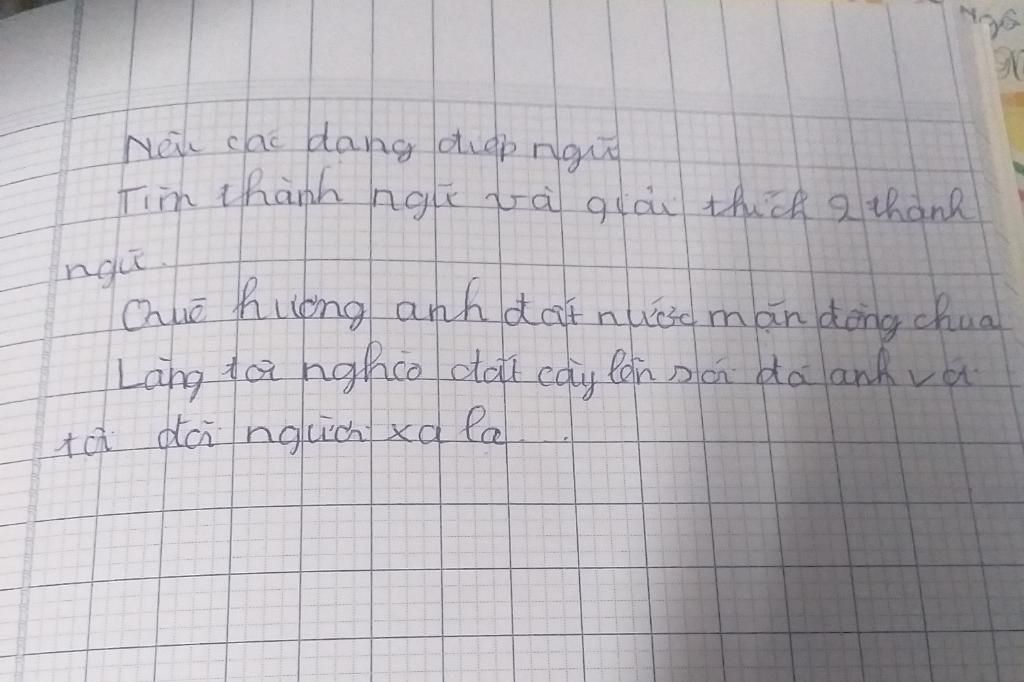 Nêu các dạng điệp ngữ
Tìm thành ngữ và giải thích 2 thành
ngữ.
Quê hương anh đất nước mặn đồng chua
Làng tôi nghèo đất cày lên sỏi đá anh với
tôi đôi người xa lạ